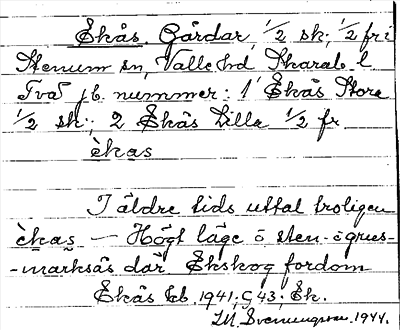 Ekås Gårdar, 1/2 sk; 1/2 fr i
Stenum sn, Valle hd Skarab. l.
Två jb. nummer: 1 Ekås Stora
1/2 sk; 2 Ekås Lilla 1/2 fr
èkas
I äldre tids uttal troligen
èkas — Högt läge å sten- o grus-
-marksås där Ekskog fordom
Ekås Eb. 1941; G 43: Ek.
Svenungsson. 1944.